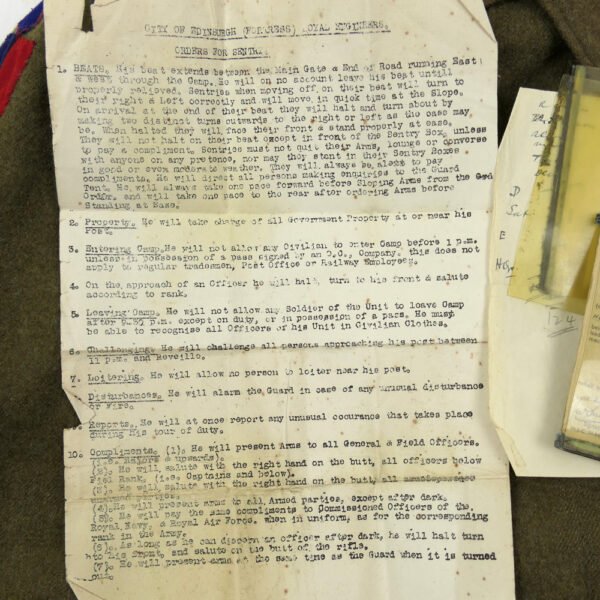 CITY OF EDINBURGH (FORTRESS) ROYAL ENGINEERS.
ORDERS FOR SENTRY.
1. BEATS. His beat extends between the Main Gate & End of Road running East
& West through the Camp. He will on no account leave his beat untill
properly relieved. Sentries when moving off on their beat will turn to
their right & Left correctly and will move in quick time at the Slope.
On arrival at the end of their beat they will halt and turn about by
making two distinct turns outwards to the right or left as the case may
be. When halted they will face their front & stand properly at ease.
They will not halt on their beat except in front of the Sentry Box, unless
to pay a compliment. Sentries must not quit their Arms, lounge or converse
with anyone on any pretence, nor may they stant in their Sentry Boxes
in good or even moderate weather. They will always be alert to pay
compliments. He will direct all persons making enquiries to the Guard
Tent. He will always take one pace forward before Sloping Arms from the
Order. and will take one pace to the rear after ordering Arms before
Standing at Ease.
2. Property. He will take charge of all Government Property at or near his
Post.
3. Entering Camp. He will not allow any Civilian to enter Camp before 1 p.m.
unless in possession of a pass signed by an O.C., Company. this does not
apply to regular tradesmen, Post Office or Railway Employees.
4. On the approach of an Officer he will halt, turn to his front & salute
according to rank.
5. Leaving Camp. He will not allow any Soldier of the Unit to leave Camp
after p.m. except on duty, or in possession of a pass. He must
be able to recognise all Officers of his Unit in Civilian Clothes.
6. Challenging. He will challenge all persons approaching his post between
11 p.m. and Reveille.
7. Loitering. He will allow no person to loiter near his post.
Disturbances. He will alarm the Guard in case of any unusual disturbance
or Fire.
Reports. He will at once report any unusual occurance that takes place
during his tour of duty.
10. Compliments. (1). He will present Arms to all General & Field Officers.
(i.e. Majors & upwards).
He will salute with the right hand on the butt, all officers below
Field Rank, (i.e. Captains and below).
He will salute with the right hand on the butt, all
parties.
(4). He will present arms to all Armed parties, except after dark.
(5). He will pay the same compliments to Commissioned Officers of the
Royal Navy, & Royal Air Force. when in uniform, as for the corresponding
rank in the Army.
(6). As long as he can discern an officer after dark, he will halt turn
to his front, and salute on the butt of the rifle.
(7). He will present arms at the same time as the Guard when it is turned
out.
124